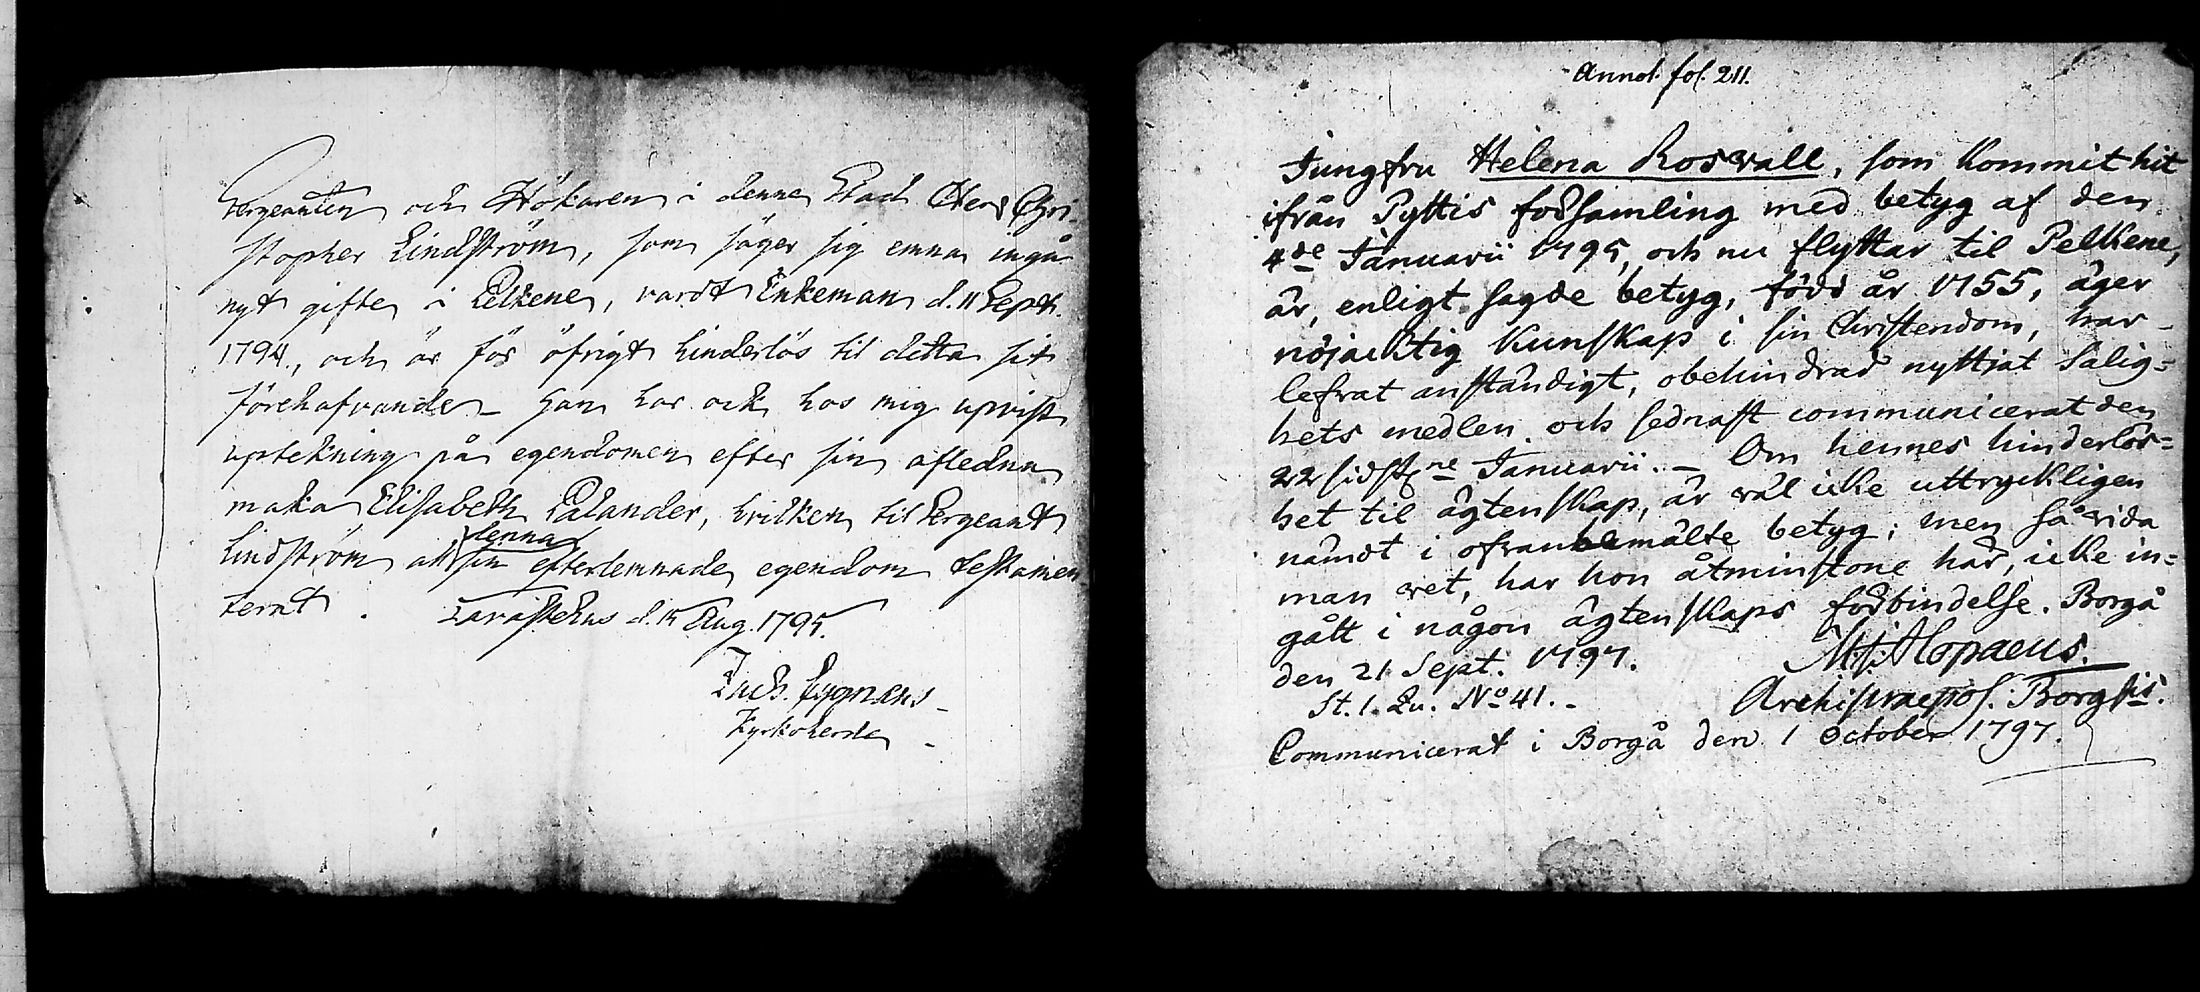 Sergeanten och Hökaren i denne Stad Herr Chri-
stopher Lindström, som säger sig emna ingå
nytt gifte i Pelkene, vardt Enkeman d. 11 Sept.
1794., och är för öfrigt hinderlös til detta sit
förehafvande – Han har ock hos mig upvist
uptekning på egendomen efter sin afledna
maka Elisabeth Palander, hvilken til Sergeant
Lindström all sin efterlemnade egendom testamen
denna
terat. Tavastehus d. 15 Aug. 1795.
Zach. Cygnæus
Kyrkoherde
Annot. fol. 211.
Jungfru Helena Roswall, som kommit hit
ifrån Pyttis församling med betyg af den
4de Januarii 1795, och nu flyttar til Pelkene,
är, enligt sagde betyg, född år 1755, äger
nöjacktig kunskap i sin Christendom, har
lefvat anständigt, obehindrad nyttjat salig=
hets medlen och sednast communicerat den
22 sidstne Januarii. – Om hennes hinderlös=
het til ägtenskap, är väl icke uttryckligen
nämdt i ofvanbemälte betyg; men så vida
man vet, har hon åtminstone här, icke in=
gått i någon ägtenskaps förbindelse. Borgå
den 21 Sept. 1797.
Mt: Alopaeus.
St. 1. Qu. No 41. –
Archipraepos. Borgsis.
Communicerat i Borgå den 1 October 1797.